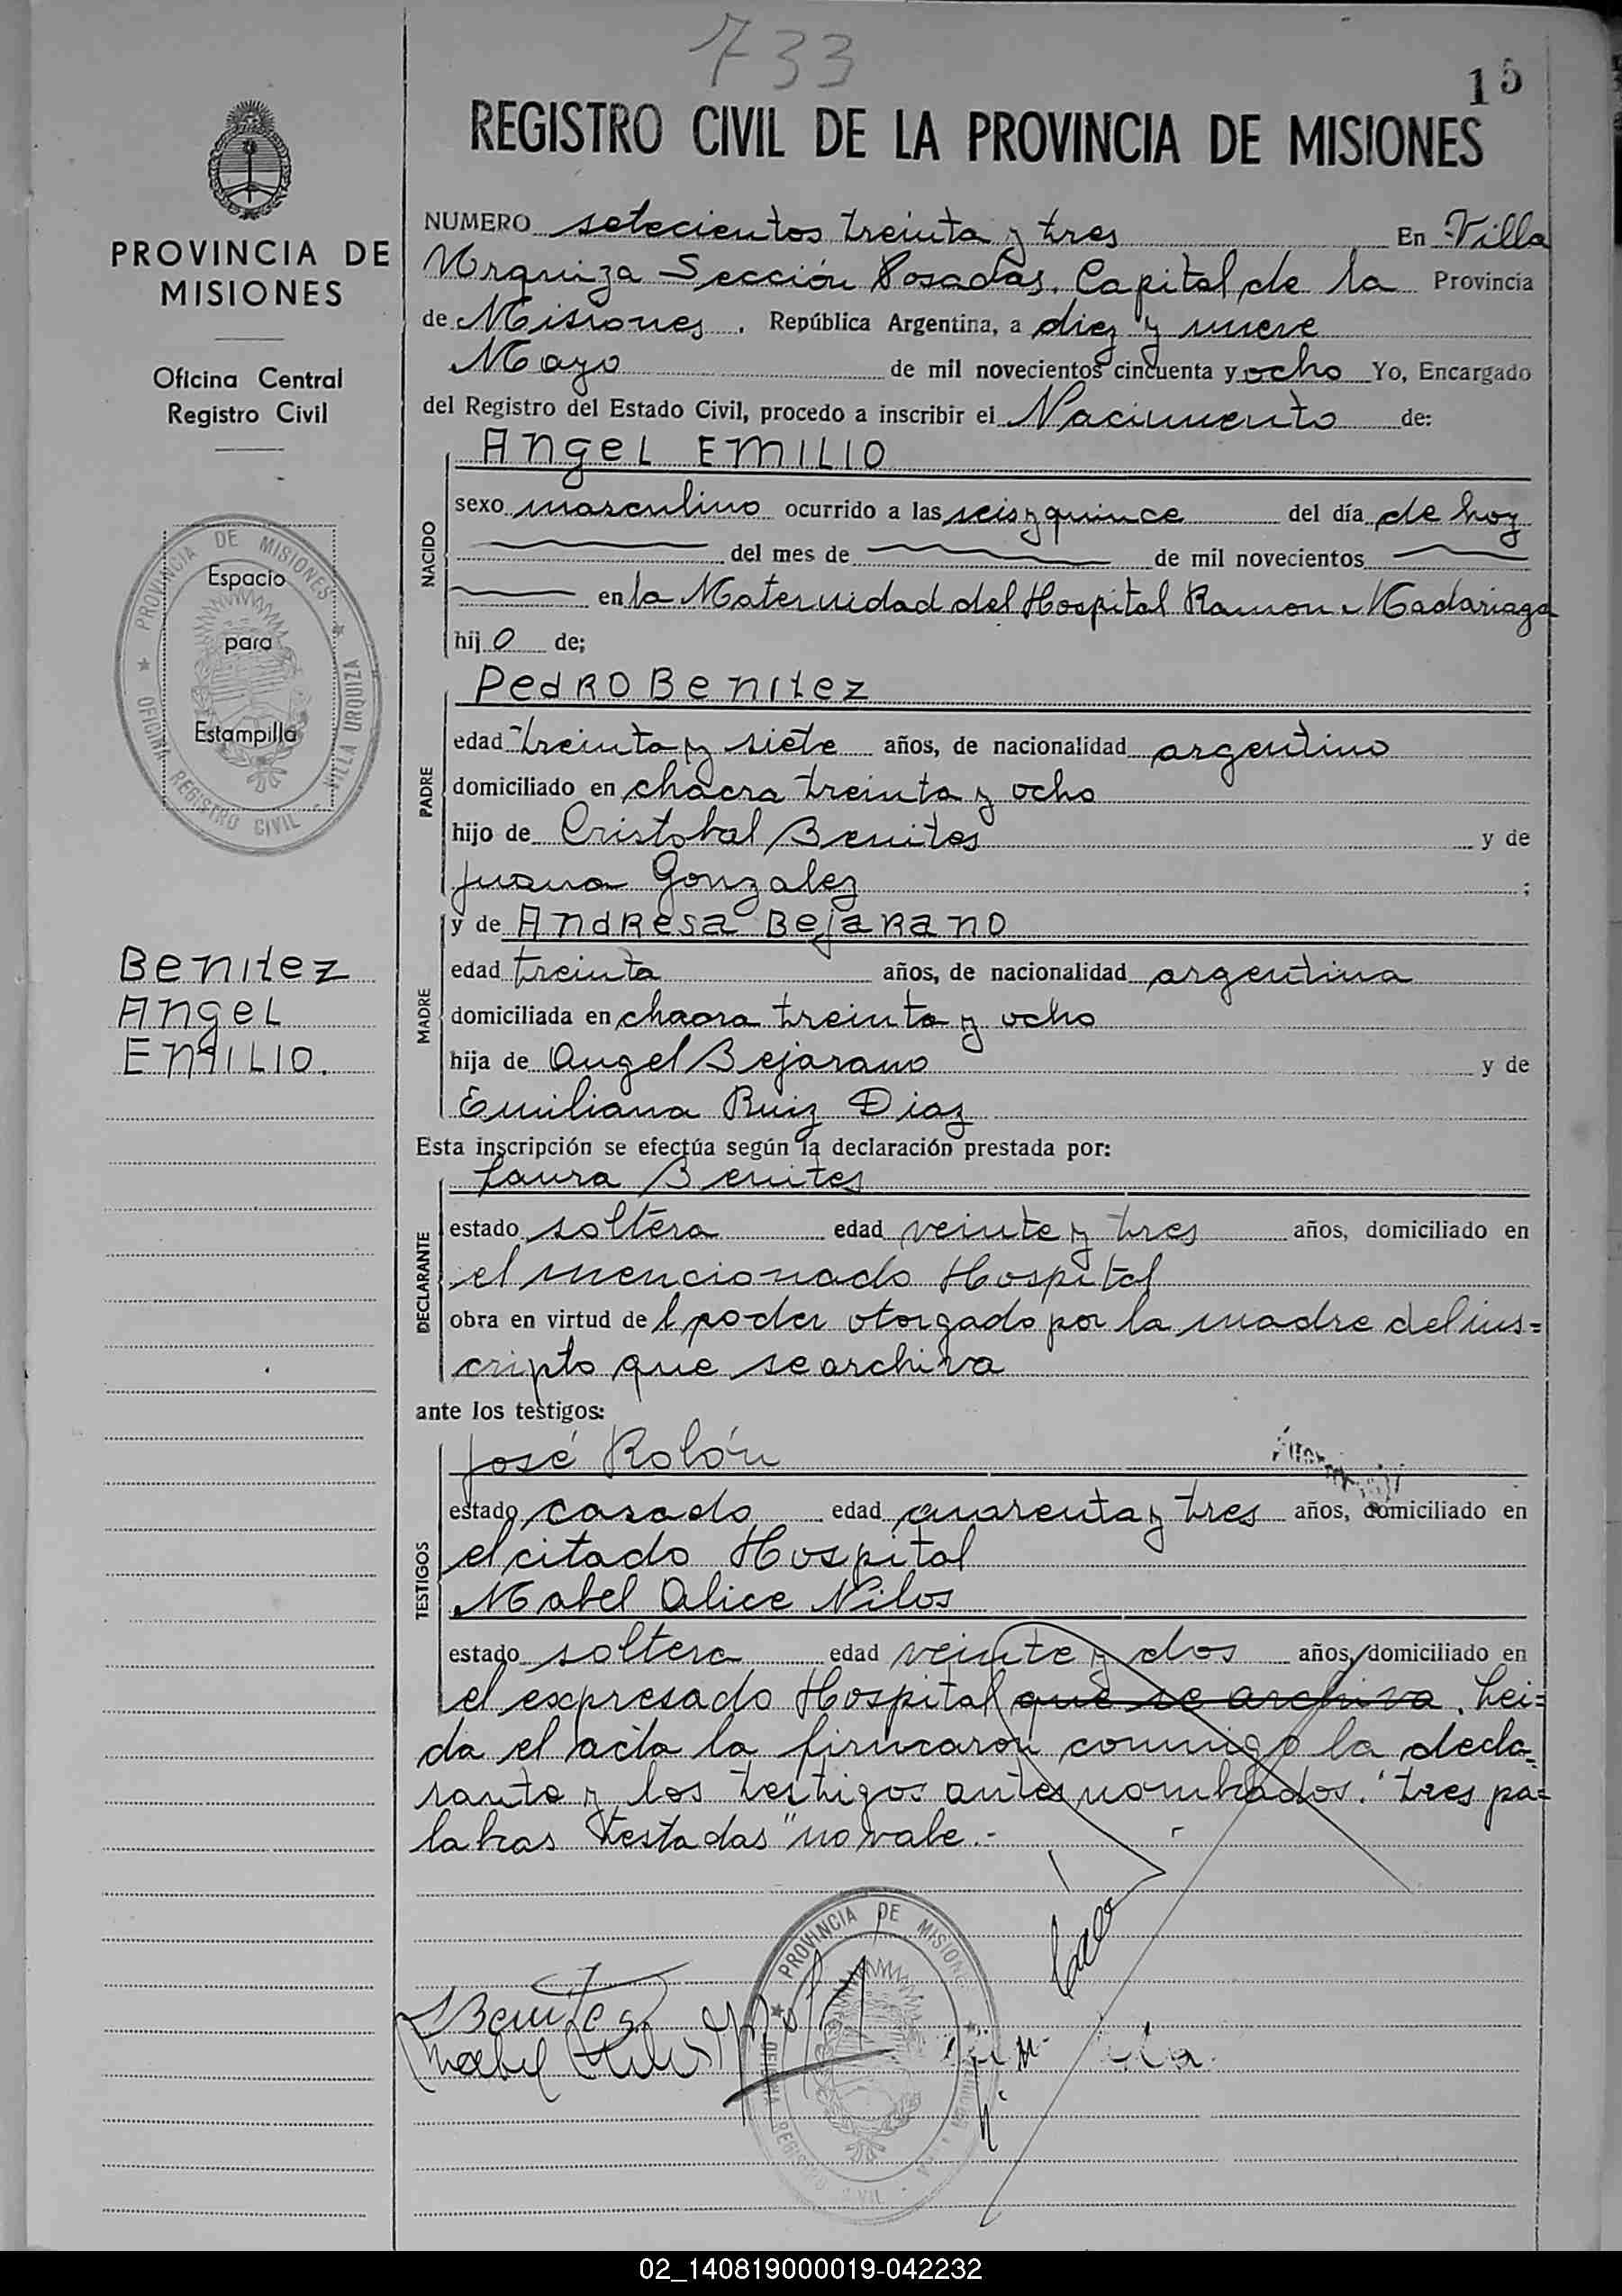 733
15
REGISTRO CIVIL DE LA PROVINCIA DE MISIONES
PROVINCIA DE
MISIONES
Oficina Central
Registro Civil
PROVINCIA DE MISIONES
OFICINA REGISTRO CIVIL - VILLA URQUIZA
Espacio
para
Estampilla
Benitez
Angel
Emilio.
NUMERO setecientos treinta y tres En Villa
Urquiza Sección Posadas. Capital de la Provincia
de Misiones. República Argentina, a diez y nueve
Mayo de mil novecientos cincuenta y ocho Yo, Encargado
del Registro del Estado Civil, procedo a inscribir el Nacimiento de:
NACIDO
Angel Emilio
sexo masculino ocurrido a las seis y quince del día de hoy
del mes de de mil novecientos
en la Maternidad del Hospital Ramon Madariaga
hijo de;
PADRE
Pedro Benitez
edad treinta y siete años, de nacionalidad argentino
domiciliado en chacra treinta y ocho
hijo de Cristobal Benites y de
Juana Gonzalez ;
MADRE
y de Andresa Bejarano
edad treinta años, de nacionalidad argentina
domiciliada en chacra treinta y ocho
hija de Angel Bejarano y de
Emiliana Ruiz Diaz
Esta inscripción se efectúa según la declaración prestada por:
DECLARANTE
Laura Benites
estado soltera edad veinte y tres años, domiciliado en
el mencionado Hospital
obra en virtud del poder otorgado por la madre del ins=
cripto que se archiva
ante los testigos:
TESTIGOS
José Rolón
estado casado edad cuarenta y tres años, domiciliado en
el citado Hospital
Mabel Alice Nilos
estado soltera edad veinte y dos años, domiciliado en
el expresado Hospital que se archiva. Lei=
da el acta la firmaron conmigo la decla=
rante y los testigos antes nombrados. "tres pa=
labras testadas" no vale.-
PROVINCIA DE MISIONES
Benites
Mabel
02_140819000019-042232